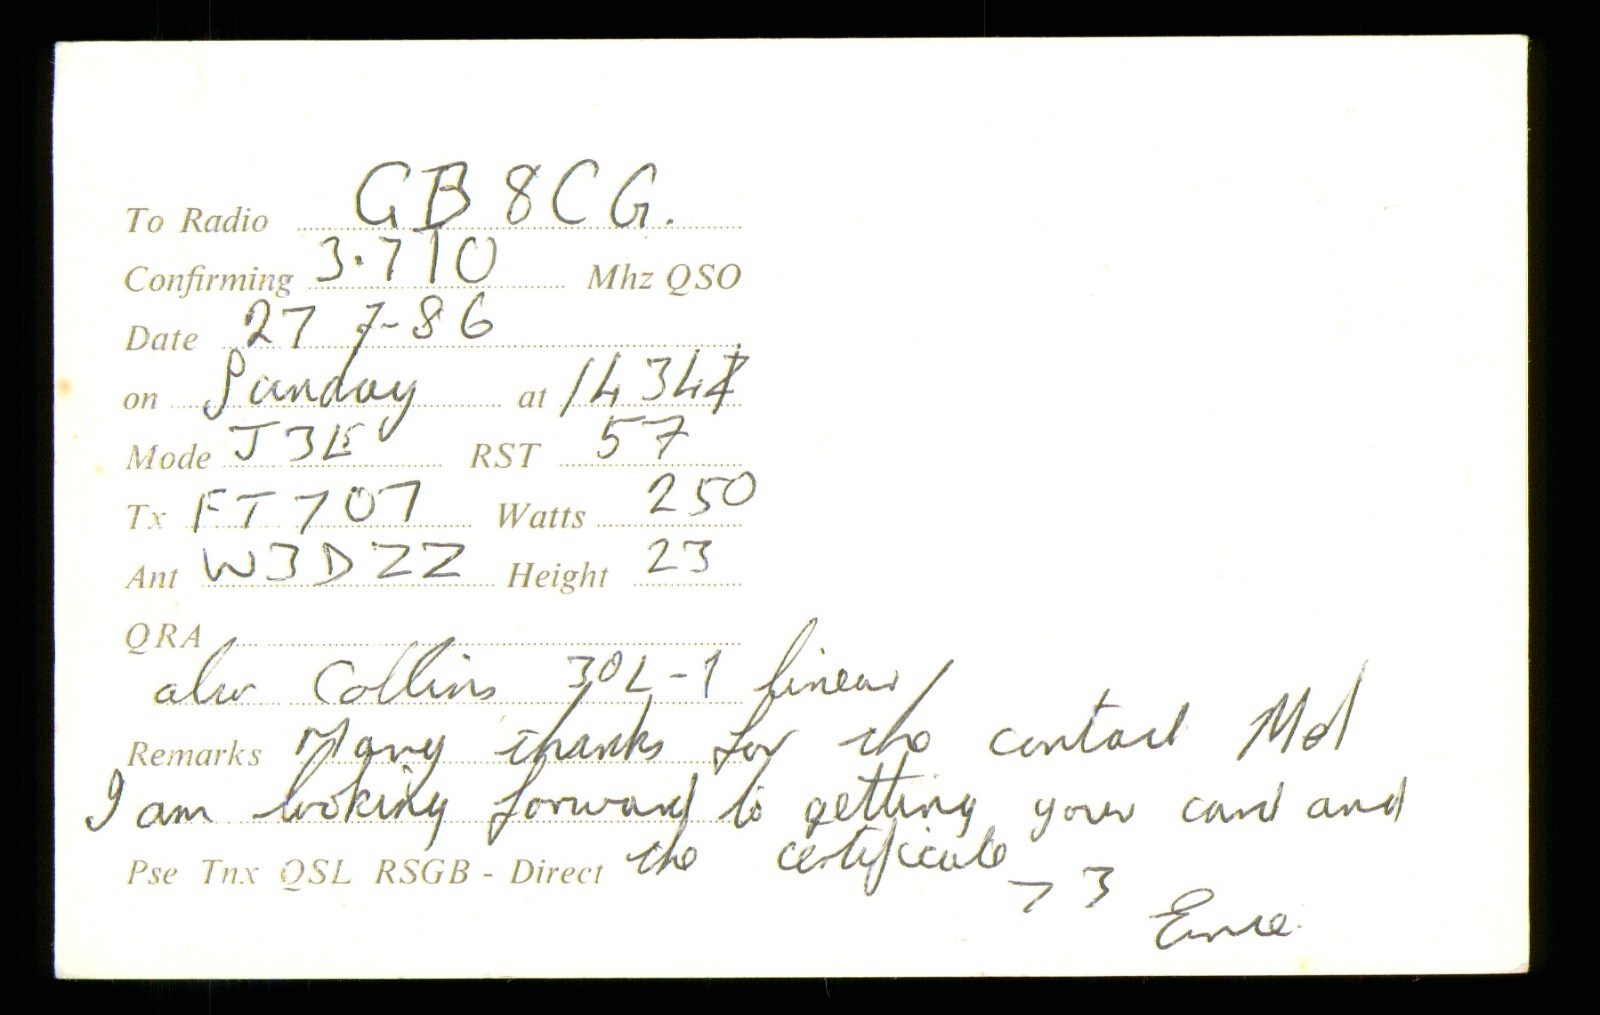 To Radio GB8CG.
Confirming 3.710 Mhz QSO
Date 27 7-86
on Sunday at 1434Z
Mode J3E RST 57
Tx FT707 Watts 250
Ant W3DZZ Height 23
QRA
also Collins 30L-1 linear
Remarks Many thanks for the contact Mel
I am looking forward to getting your card and
Pse Tnx QSL RSGB - Direct the certificate
73
Ernie.